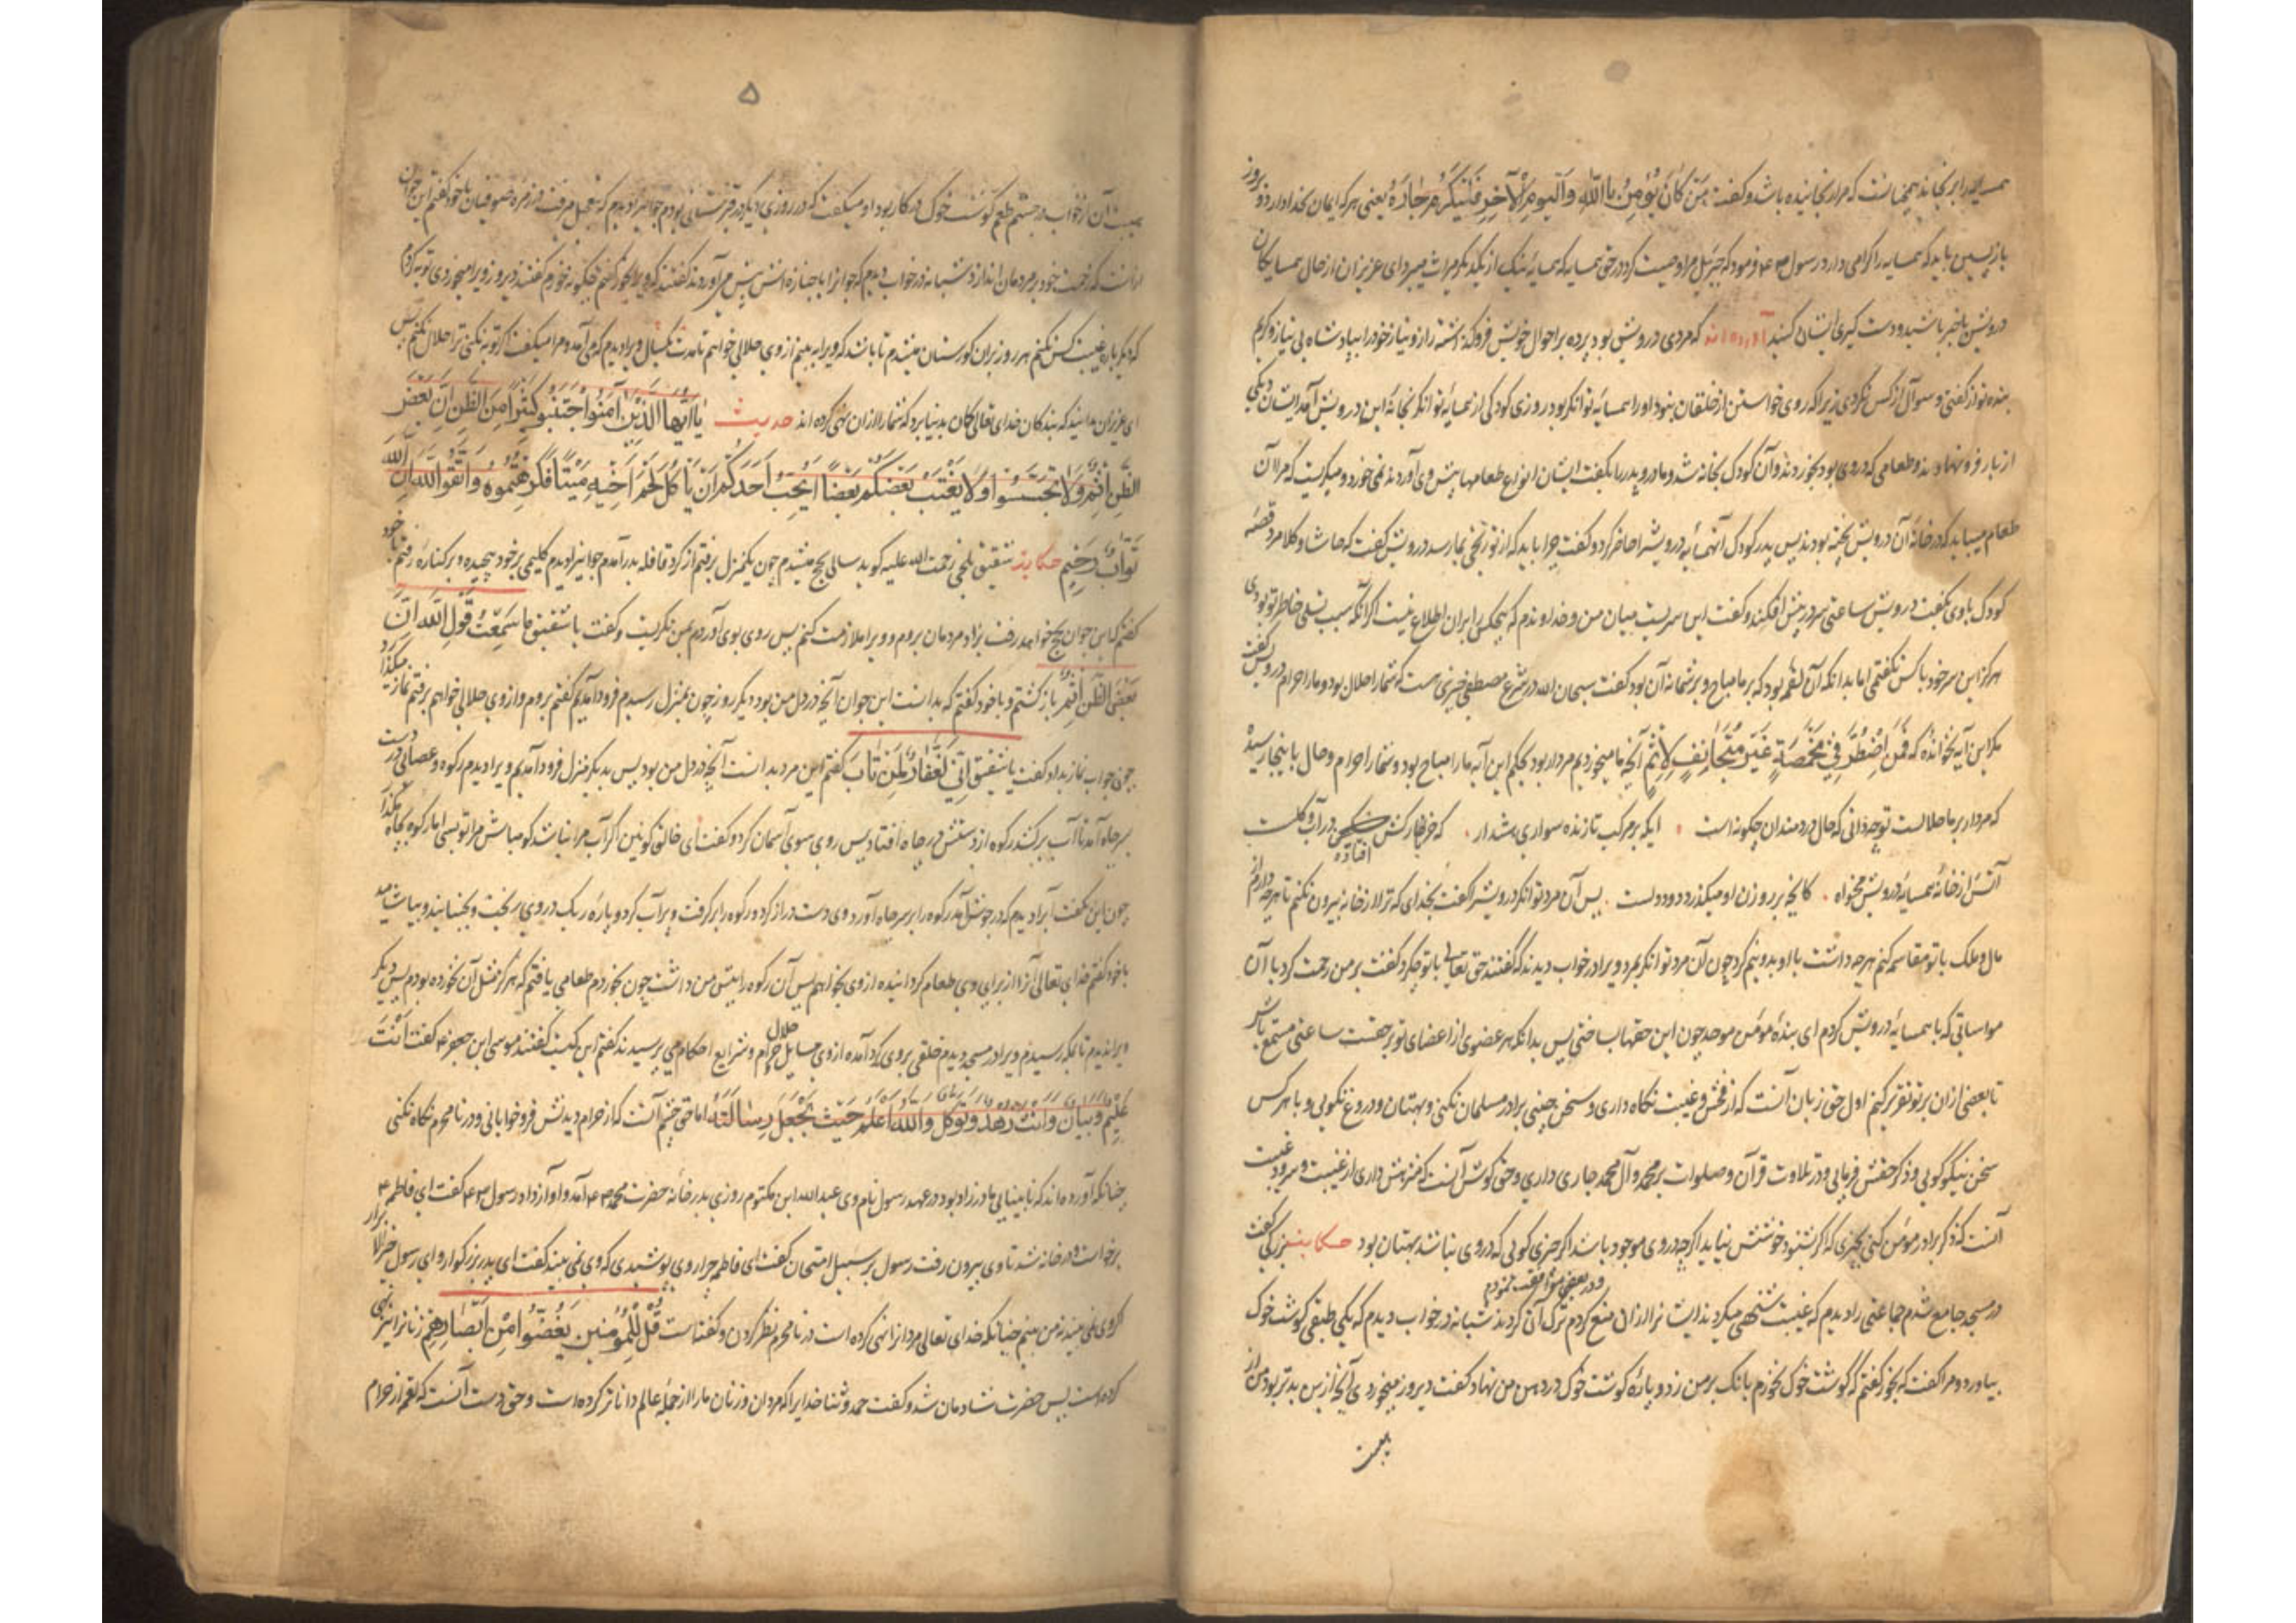 همسایه را برنجاند همچنانست که مرا رنجانیده باشد و گفت مَن کانَ یُؤمِنُ بِاللّهِ وَالیَومِ الآخِرِ فَلیُکرِم جارَهُ یعنی هر که ایمان بخدا دارد و روز
بازپسین باید که همسایه را گرامی دارد و رسول فرمود که جبرئیل مرا وصیت کرد در حق همسایه که همسایه نیک از یکدیگر میراث میبرد ای عزیزان از حال همسایکان
درویش باخبر باشید و دست گیری ایشان کنید آورده اند که مردی درویش بود پرده بر احوال خویش فروگذاشته راز و نیاز خود را بپادشاه بی نیاز و کریم
بنده نواز گفتی و سوآل از کس نکردی زیرا که روی خواستن از خلقان نبود او را همسایهٔ توانکر بود روزی کودکی از همسایهٔ توانکر بخانهٔ این درویش آمد ایشان دیکی
از بار فرو نهاده بودند و طعامی که در وی بود بخوردند و آن کودک بخانه شد و مادر و پدر را بگفت ایشان انواع طعامها پیش وی آوردند نمی خورد و میکریست که مرا آن
طعام میباید که در خانهٔ آن درویش پخته بودند پس پدر کودک آن همسایه درویش را حاضر کرد و گفت چرا باید که از تو رنجی بما رسد درویش گفت که حاشا و کلا مرد قصهٔ
کودک با وی بگفت درویش ساعتی سر در پیش افکند و گفت این سریست میان من و خداوندم که هیچکس را بر آن اطلاع نیست اگر نه سبب تسلی خاطر تو بودی
هرگز این سر خود با کس نگفتمی اما بدانکه آن لقمه بود که بر ما مباح و بر شما نه آن بود گفت سبحان الله در شرع مصطفی چیزی هست که شما را حلال بود و ما را حرام درویش گفت
مگر این آیه نخوانده که فَمَنِ اضطُرَّ فی مَخمَصَةٍ غَیرَ مُتَجانِفٍ لِاِثمٍ آنچه ما میخوردیم مردار بود بحکم این آیه ما را مباح بود و شما را حرام و حال باینجا رسیده
که مردار بر ما حلالست تو چه دانی که حال دردمندان چگونه است ایکه بر مرکب تازنده سواری هشدار که خر خارکش مسکین در آب و گلست
افتاده
آتش از خانهٔ همسایهٔ درویش مخواه کانچه بر روزن او میگذرد دود دلست پس آن مرد توانکر درویش را گفت بخدای که ترا از خانه بیرون نکنم تا هر چه دارم از
مال و ملک با تو مقاسمه کنم هر چه داشت با او بدو نیم کرد چون آن مرد توانکر بمرد ویرا در خواب دیدند گفتند حق تعالی با تو چکرد گفت بر من رحمت کرد با آن
مواساتی که با همسایهٔ درویش کردم ای بندهٔ مؤمن موحد چون این حقها بشناختی پس بدانکه هر عضوی از اعضای تو بر حقست ساعتی مستمع باش
تا بعضی از آن بر تو تقریر کنیم اول حق زبان آنست که از فحش و غیبت نگاه داری و سخن چینی برادر مسلمان نکنی و بهتان و دروغ نگویی و با هر کس
سخن نیکو گویی و ذکر حقش فرمایی و در تلاوت قرآن و صلوات بر محمد و آل محمد جاری داری و حق گوش آنست که منزهش داری از غیبت و سرود غیبت
آنست که ذکر برادر مؤمن کنی بچیزی که اگر شنود خوشش نیاید اگر چه در وی موجود باشد اگر چیزی گویی که در وی نباشد بهتان بود حکایت بزرگی گفت
در مسجد جامع شدم جماعتی را دیدم که غیبت شخصی میکردند ایشانرا از آن منع کردم ترک آن کردند شبانه در خواب دیدم که یکی طبقی گوشت خوک
ودر بعضی موافقت نمودم
بیاورد و مرا گفت که بخور گفتم که گوشت خوک نخورم بانگ بر من زد و پارهٔ گوشت خوک در دهن من نهاد گفت دیروز میخوردی آنچه ازین بدتر بود من از
هیبت
۵
هیبت آن از خواب درجستم طعم گوشت خوک در کار بود و او میگفت که در روزی دیگر در قبرستانی بودم جوانی را دیدم که تعجیل میرفت در زمره صوفیان با خود گفتم این جوان
از آنست که زحمت خود بر مردمان اندازد شبانه در خواب دیدم که جوان را با جنازه اش پیش من آوردند گفتند که ویرا بخور گفتم چگونه خورم گفتند دیروز ویرا میخوردی توبه کردم
که دیگر باره غیبت کس نکنم هر روز بر آن گورستان میشدم تا باشد که ویرا به بینم از وی حلالی خواهم تا مدت یکسال ویرا دیدم که می آمد و مرا میگفت اگر توبه نکنی ترا حلال نکنم پس
ای عزیزان بدانید که بندگان خدای تعالی گمان بد نباید برد که شما را از آن نهی کرده اند حدیث یا اَیُّهَا الَّذینَ آمَنُوا اجتَنِبُوا کَثیرًا مِنَ الظَّنِّ اِنَّ بَعضَ
الظَّنِّ اِثمٌ وَلا تَجَسَّسُوا وَلا یَغتَب بَعضُکُم بَعضًا اَیُحِبُّ اَحَدُکُم اَن یَاکُلَ لَحمَ اَخیهِ مَیتًا فَکَرِهتُمُوهُ وَاتَّقُوا اللّهَ اِنَّ اللّهَ
تَوّابٌ رَحیمٌ حکایت شقیق بلخی رحمت الله علیه گوید سالی بحج میشدم چون یکمنزل برفتم از گرد قافله بدر آمدم جوانی را دیدم گلیمی بر خود پیچیده و بر کناره رفتم با خود
گفتم که این جوان بحج خواهد رفت بزاد مردمان بروم و ویرا ملامت کنم پس روی بوی آوردم بمن نگریست و گفت یا شقیق ما سَمِعتَ قَولَ اللّهِ اِنَّ
بَعضَ الظَّنِّ اِثمٌ باز گشتم و با خود گفتم که بدانست این جوان آنچه در دل من بود دیگر روز چون بمنزل رسیدم فرود آمدیم گفتم بروم و از وی حلالی خواهم برفتم نماز میگذارد
چون جواب نماز بداد گفت یا شقیق اِنّی لَغَفّارٌ لِمَن تابَ گفتم این مرد بدانست آنچه در دل من بود پس بدیگر منزل فرود آمدیم ویرا دیدم رکوه و عصائی در دست
بر سر چاه آمد تا آب بر کشد رکوه از دستش در چاه افتاد پس روی سوی آسمان کرد و گفت ای خالق کونین اگر آب مرا نباشد گو مباش مرا تو بسی اما رکوه بکار
چون این بگفت آب را دیدم که در جوش آمد رکوه را بر سر چاه آورد وی دست دراز کرد و رکوه را بر گرفت و پر آب کرد و پارهٔ ریک در وی ریخت و بجنبانید و بیاشامید
با خود گفتم خدای تعالی آنرا از برای وی طعام گردانیده از وی بخواهم پس آن رکوه را پیش من داشت چون بخوردم طعامی یافتم که هرگز مثل آن نخورده بودم پس دیگر
ویرا ندیدم تا بمکه رسیدم ویرا در مسجد دیدم خلقی بر وی گرد آمده از وی مسایل حلال حرام و شرایع احکام می پرسیدند گفتم این کیست گفتند موسی ابن جعفر گفت اَنتَ
عَلیمٌ وَبَیانٌ وَاَنتَ زهد وَتَوَکُّل وَاللّهُ اَعلَمُ حَیثُ یَجعَلُ رِسالَتَهُ اما حق چشم آنست که از حرام دیدنش فرو خوابانی و در نامحرم نگاه نکنی
چنانکه آورده اند که نابینایی مادرزاد بود در عهد رسول نام وی عبدالله ابن مکتوم روزی بدر خانه حضرت محمد آمد و آواز داد رسول گفت ای فاطمه
برخواست در خانه شد تا وی بیرون رفت رسول بر سبیل امتحان گفت ای فاطمه چرا روی پوشیدی که وی نمی بیند گفت ای پدر بزرگوار و ای رسول
گر وی نمی بیند من می بینم چنانکه خدای تعالی مردانرا نهی کرده است در نامحرم نظر کردن و گفته است قُل لِلمُؤمِنینَ یَغُضُّوا مِن اَبصارِهِم زنانرا نیز نهی
کرده است پس حضرت شادمان شد و گفت حمد و ثنا خدایرا که مردان و زنان ما را از جملهٔ عالم داناتر کرده است و حق دست آنست که لقمه از حرام